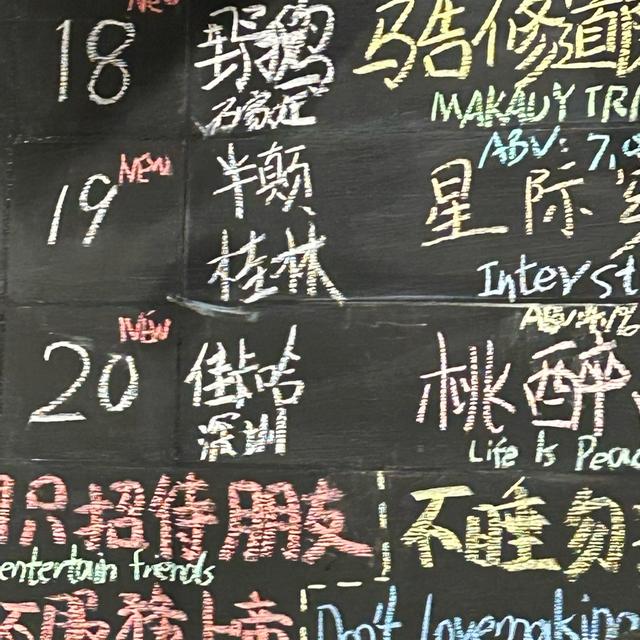 NEW
18
鹅
石家庄
马告修道
MAKAUY TRA
ABV: 7.0
NEW
19
半颠
桂林
星际
Interst
ABV:4.1%
NEW
20
佳哈
深圳
桃醉
Life Is Peac
只招待朋友
entertain friends
不睡勿
Don't lovemaking